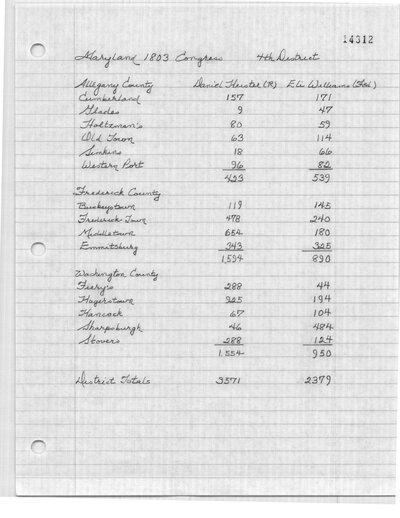 14312
Maryland 1803 Congress 4th District
Allegany County Daniel Heister (R) Eli Williams (Fed)
Cumberland 157 171
Glades 9 47
Holtzman's 80 59
Old Town 63 114
Simkins 18 66
Western Port 96 82
423 539
Frederick County
Buckeystown 119 145
Frederick Town 478 240
Middletown 654 180
Emmittsburg 343 325
1,594 890
Washington County
Fiery's 288 44
Hagerstown 925 194
Hancock 67 104
Sharpsburgh 46 484
Stover's 228 124
1,554 950
District Totals 3571 2379